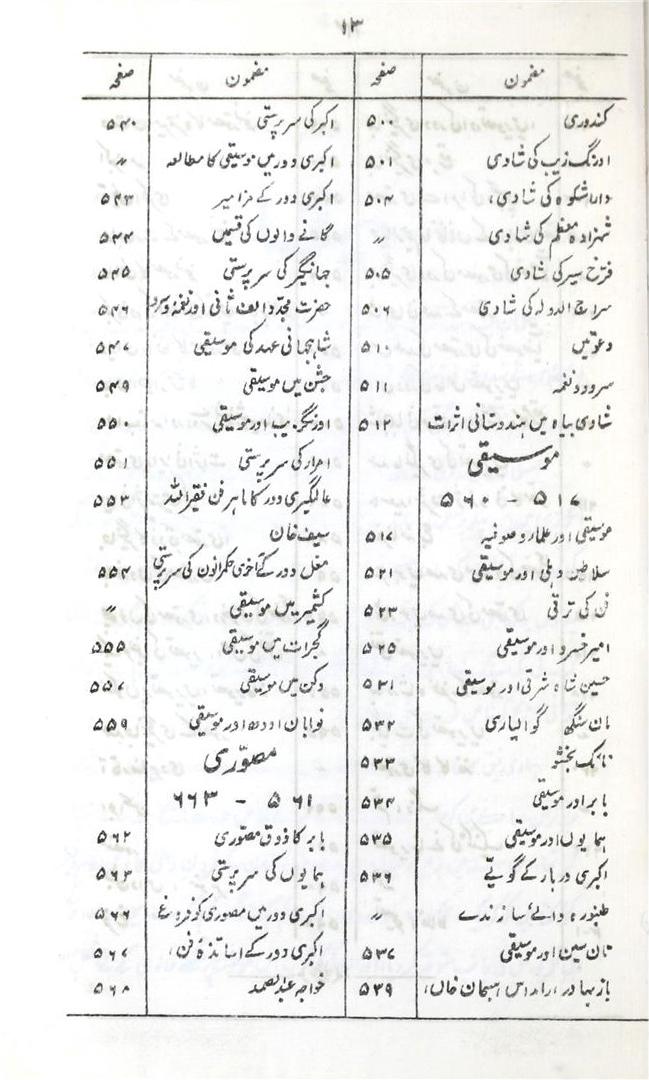 ۱۳
مضمون صفحہ
کندوری ۵۰۰
اورنگ زیب کی شادی ۵۰۱
داراشکوہ کی شادی، ۵۰۴
شہزادہ معظم کی شادی 〃
فرخ سیر کی شادی ۵۰۵
سراج الدولہ کی شادی ۵۰۶
دعوتیں ۵۱۰
سرود و نغمہ ۵۱۱
شادی بیاہ میں ہندوستانی اثرات ۵۱۲
موسیقی
۵۱۷ - ۵۶۰
موسیقی اور علماء و صوفیہ ۵۱۷
سلاطین دہلی اور موسیقی ۵۲۱
فن کی ترقی ۵۲۳
امیر خسرو اور موسیقی ۵۲۵
حسین شاہ شرقی اور موسیقی ۵۳۱
مان سنگھ گوالیاری ۵۳۲
نائک بخشو ۵۳۳
بابر اور موسیقی ۵۳۴
ہمایوں اور موسیقی ۵۳۵
اکبری دربار کے گویے ۵۳۶
طنبورہ والے سازندے 〃
تان سین اور موسیقی ۵۳۷
باز بہادر، رام داس، سبحان خاں، ۵۳۹
مضمون صفحہ
اکبر کی سرپرستی ۵۴۰
اکبری دور میں موسیقی کا مطالعہ 〃
اکبری دور کے مزامیر ۵۴۳
گانے والوں کی قسمیں ۵۴۴
جہانگیر کی سرپرستی ۵۴۵
حضرت مجدد الف ثانی اور نغمہ و سرود ۵۴۶
شاہجہانی عہد کی موسیقی ۵۴۷
جشن میں موسیقی ۵۴۹
اورنگزیب اور موسیقی ۵۵۰
امراء کی سرپرستی ۵۵۱
عالمگیری دور کا ماہر فن فقیر اللہ ۵۵۳
سیف خان
مغل دور کے آخری حکمرانوں کی سرپرستی ۵۵۴
کشمیر میں موسیقی 〃
گجرات میں موسیقی ۵۵۵
دکن میں موسیقی ۵۵۷
نوابان اودھ اور موسیقی ۵۵۹
مصوّری
۵۶۱ - ۶۶۳
بابر کا ذوق مصوّری ۵۶۲
ہمایوں کی سرپرستی ۵۶۳
اکبری دور میں مصوری کو فروغ ۵۶۶
اکبری دور کے اساتذۂ فن، ۵۶۷
خواجہ عبدالصمد ۵۶۸